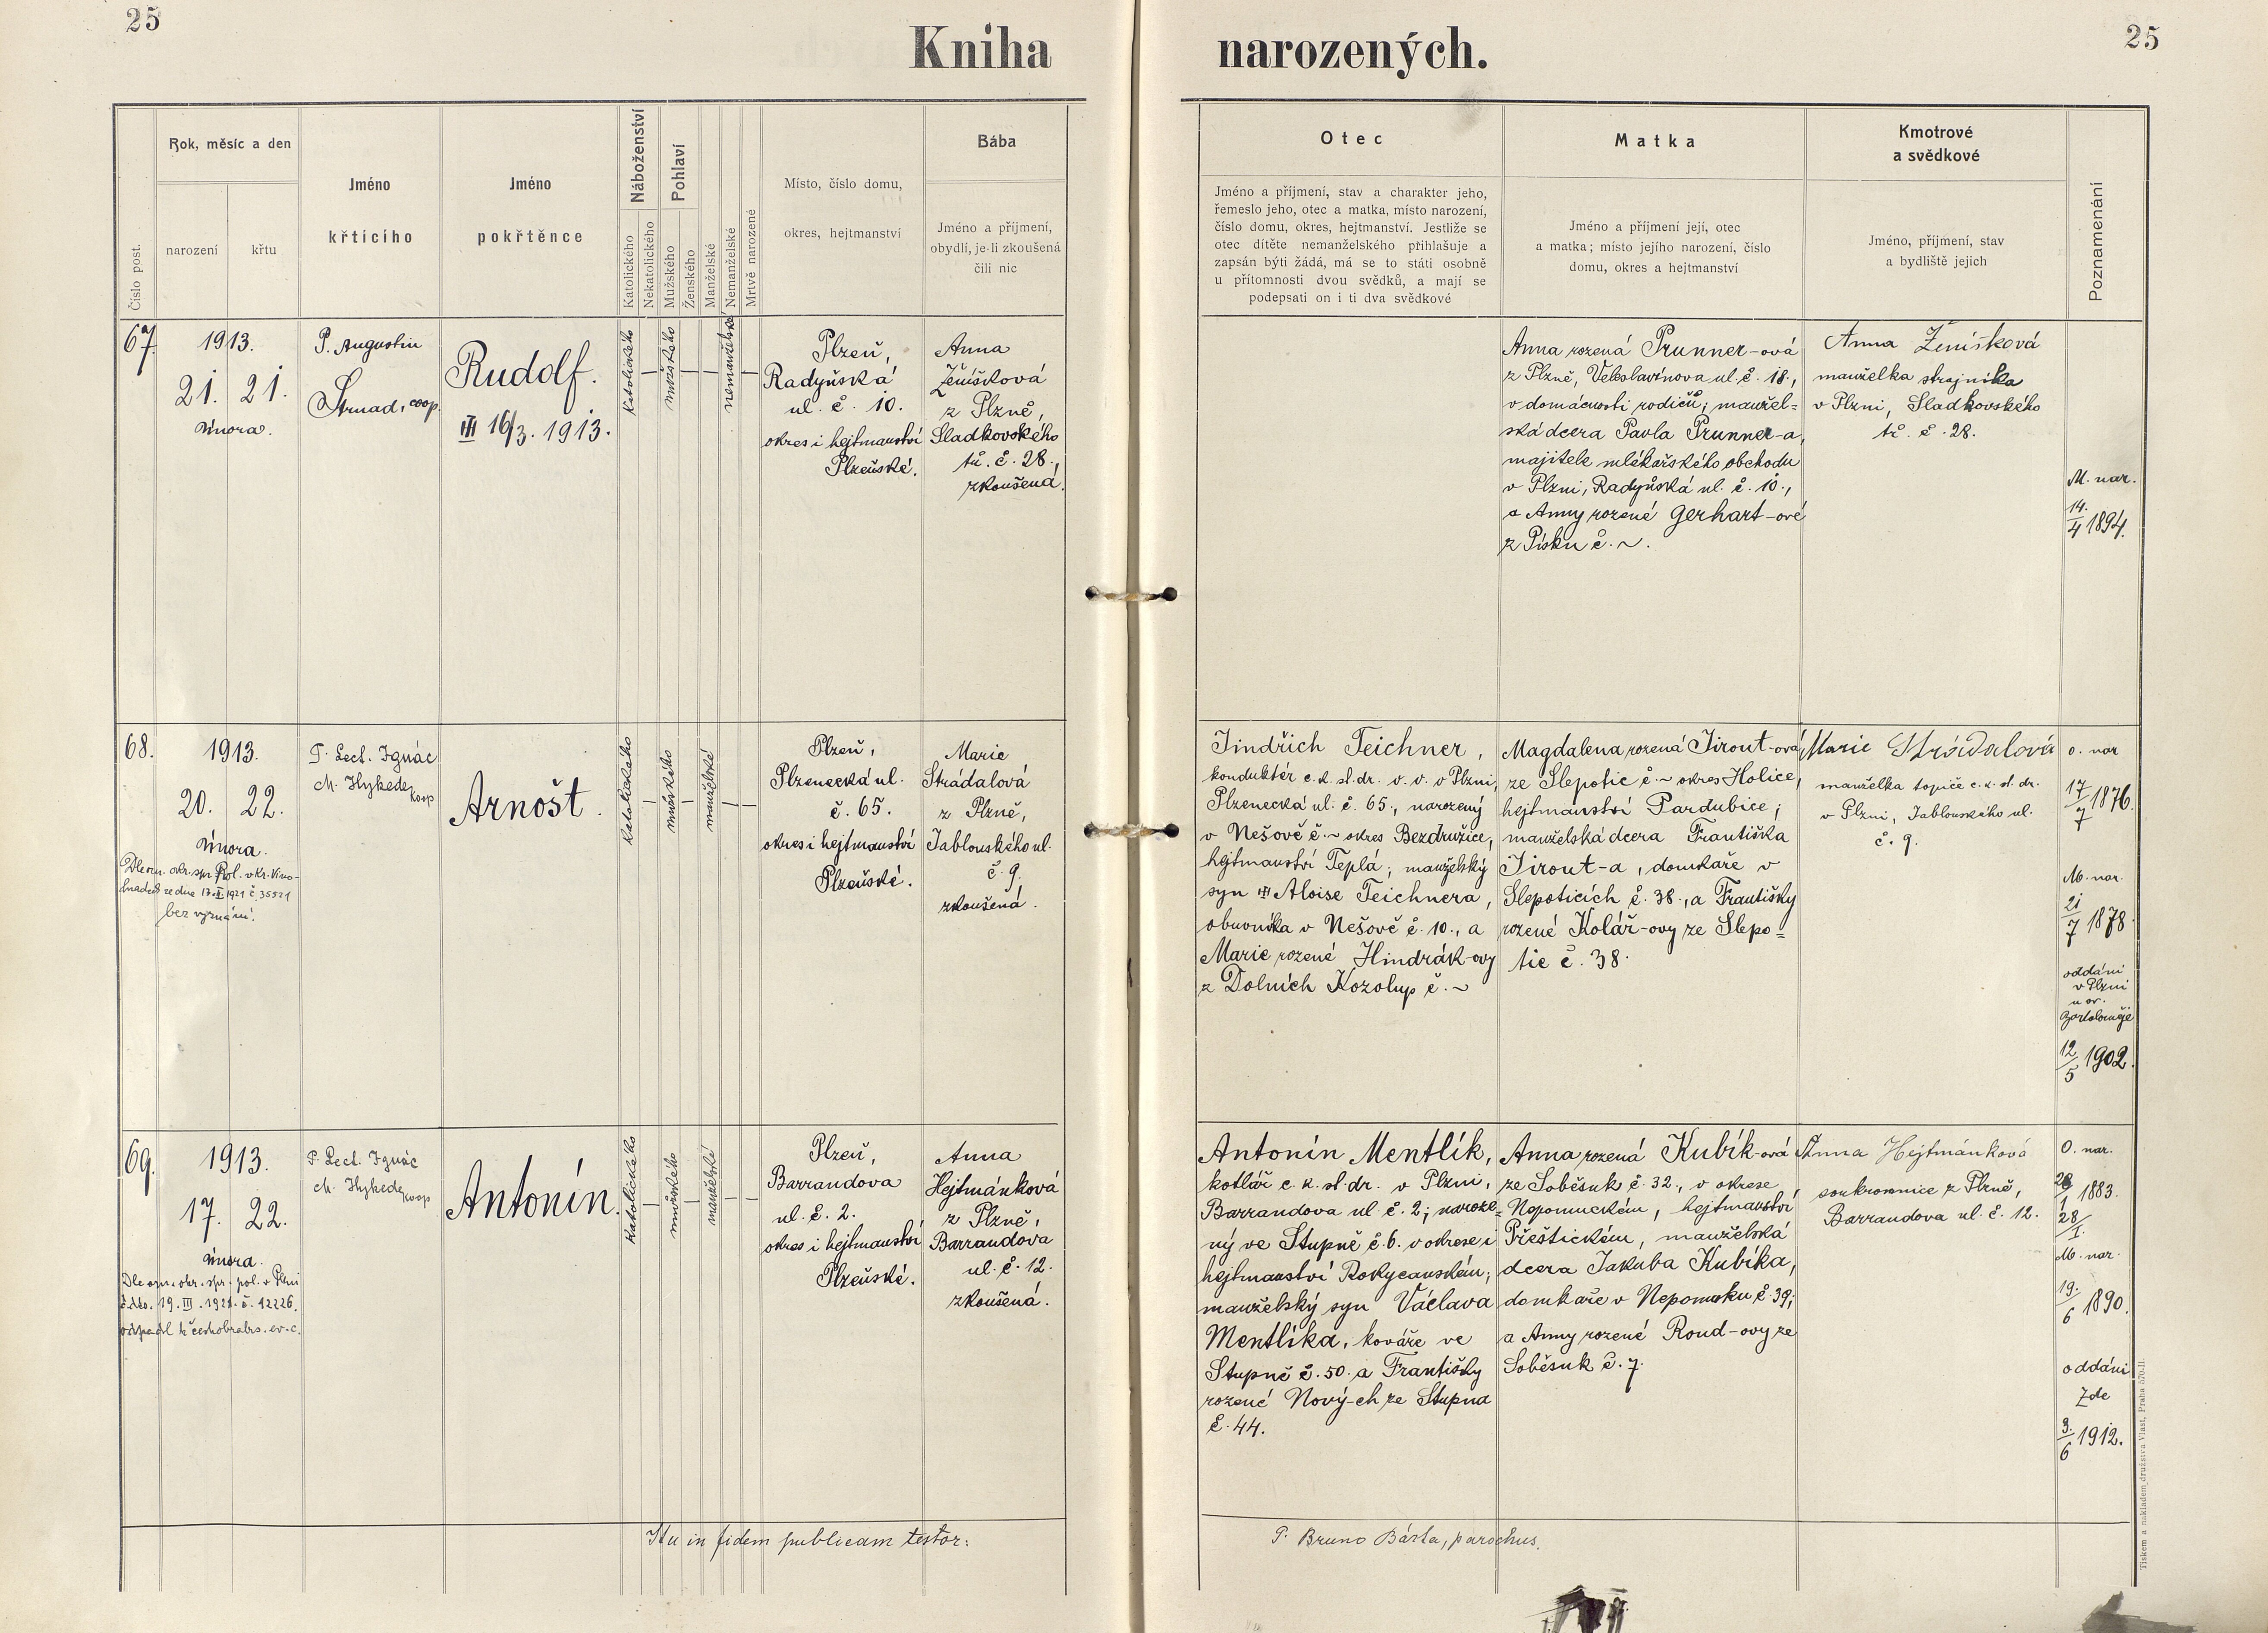 25
25
Kniha narozených.
Číslo post.
Rok, měsíc a den
narození
křtu
Jméno
křticího
Jméno
pokřtěnce
Náboženství
Katolického
Nekatolického
Pohlaví
Mužského
Ženského
Manželské
Nemanželské
Mrtvě narozené
Místo, číslo domu,
okres, hejtmanství
Bába
Jméno a příjmení,
obydlí, je-li zkoušená
čili nic
Otec
Jméno a příjmení, stav a charakter jeho,
řemeslo jeho, otec a matka, místo narození,
číslo domu, okres, hejtmanství. Jestliže se
otec dítěte nemanželského přihlašuje a
zapsán býti žádá, má se to státi osobně
u přítomnosti dvou svědků, a mají se
podepsati on i ti dva svědkové
Matka
Jméno a příjmení její, otec
a matka; místo jejího narození, číslo
domu, okres a hejtmanství
Kmotrové
a svědkové
Jméno, příjmení, stav
a bydliště jejich
Poznamenání
67.
1913.
21. 21.
února.
P. Augustin
Strnad, coop.
Rudolf.
16/3. 1913.
katolického
mužského
nemanželské
Plzeň,
Radyňská
ul. č. 10.
okres i hejtmanství
Plzeňské.
Anna
Ženíšková
z Plzně,
Sladkovského
tř. č. 28.,
zkoušená.
Anna rozená Prunner-ová
z Plzně, Veleslavínova ul. č. 18.,
v domácnosti rodičů; manžel-
ská dcera Pavla Prunner-a,
majitele mlékařského obchodu
v Plzni, Radyňská ul. č. 10.,
a Anny rozené Gerhart-ové
z Písku č. ~.
Anna Ženíšková
manželka strojníka
v Plzni, Sladkovského
tř. č. 28.
M. nar.
14./4 1894.
68.
1913.
20. 22.
února.
Dle ozn. okr. spr. pol. v Kr. Vino-
hradech ze dne 17.II.1921 č. 35521
bez vyznání.
P. Lect. Ignác
M. Hykede
koop
Arnošt.
katolického
mužského
manželské
Plzeň,
Plzenecká ul.
č. 65.
okres i hejtmanství
Plzeňské.
Marie
Strádalová
z Plzně,
Jablonského ul.
č. 9.
zkoušená.
Jindřich Teichner,
konduktér c. k. st. dr. v. v. v Plzni,
Plzenecká ul. č. 65., narozený
v Nešově č. ~ okres Bezdružice,
hejtmanství Teplá; manželský
syn Aloise Teichnera,
obuvníka v Nešově č. 10., a
Marie rozené Hindrák-ovy
z Dolních Kozolup č. ~
Magdalena rozená Jirout-ová
ze Slepotic č. ~ okres Holice,
hejtmanství Pardubice;
manželská dcera Františka
Jirout-a, domkaře v
Slepoticích č. 38., a Františky
rozené Kolář-ovy ze Slepo=
tic č. 38.
Marie Strádalová
manželka topiče c. k. st. dr.
v Plzni, Jablonského ul.
č. 9.
O. nar
17/7 1876.
M. nar.
21/7 1878.
oddáni
v Plzni
u sv.
Bartoloměje
12/5 1902.
69.
1913.
17. 22.
února.
Dle ozn. okr. spr. pol. v Plzni
z dto. 19. III. 1921. č. 12226.
odpadl k českobrabrs. ev. c.
P. Lect. Ignác
M. Hykede
koop
Antonín.
katolického
mužského
manželské
Plzeň,
Barrandova
ul. č. 2.
okres i hejtmanství
Plzeňské.
Anna
Hejtmánková
z Plzně,
Barrandova
ul. č. 12.
zkoušená.
Antonín Mentlík,
kotlář c. k. st. dr. v Plzni,
Barrandova ul. č. 2; naroze=
ný ve Stupně č. 6. v okrese i
hejtmanství Rokycanském;
manželský syn Václava
Mentlíka, kováře ve
Stupně č. 50. a Františky
rozené Nový-ch ze Stupna
č. 44.
Anna rozená Kubík-ová
ze Soběsuk č. 32., v okrese
Nepomuckém, hejtmanství
Přeštickém, manželská
dcera Jakuba Kubíka,
domkaře v Nepomuku č. 39;
a Anny rozené Roud-ovy ze
Soběsuk č. 7.
Anna Hejtmánková
soukromnice z Plzně,
Barrandova ul. č. 12.
O. nar.
1883.
28/1.
M. nar.
19./6 1890.
oddáni
zde
3./6 1912.
Ita in fidem publicam testor:
P. Bruno Bárta, parochus.
Tiskem a nakladem družstva Vlast, Praha 570-II.